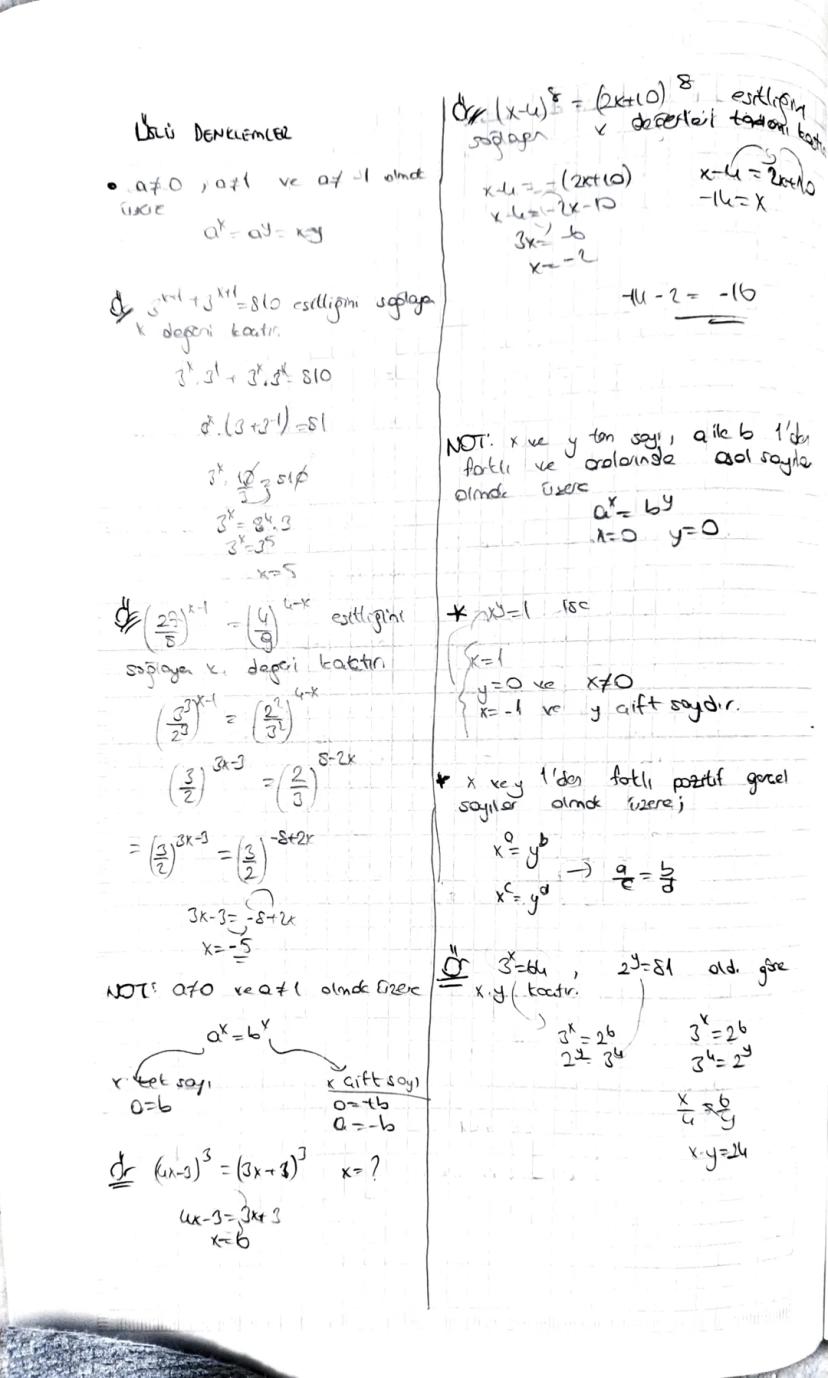 ÜSLÜ DENKLEMLER
• a≠0 , a≠1 ve a≠-1 olmak
üzere
aˣ = aʸ = x=y
Ör 3ˣ⁻¹ + 3ˣ⁺¹ = 810 esitliğini sağlayan
x değeri kaçtır.
3ˣ.3¹ + 3ˣ.3ˣ = 810
.(3+3⁻¹) = 81
3ˣ. 10/3 = 810
3ˣ = 3⁴.3
3ˣ = 3⁵
x=5
Ör (27/8)ˣ⁻¹ = (4/9)⁴⁻ˣ esitliğini
sağlayan x değeri kaçtır.
(3³/2³)ˣ⁻¹ = (2²/3²)⁴⁻ˣ
(3/2)³ˣ⁻³ = (2/3)⁸⁻²ˣ
= (3/2)³ˣ⁻³ = (3/2)⁻⁸⁺²ˣ
3x-3 = -8+2x
x=-5
NOT: a≠0 ve a≠1 olmak üzere
aˣ = bˣ
x tek sayı
a=b
x çift sayı
a=+b
a=-b
Ör (4x-3)³ = (3x+3)³ x=?
4x-3 = 3x+3
x=6
Ör (x-4)⁸ = (2x+10)⁸ esitliğin
sağlayan x değerleri toplamı kaçtır
x-4 = -(2x+10)
x-4 = -2x-10
3x = -6
x = -2
x-4 = 2x+10
-14 = x
-14 - 2 = -16
NOT: x ve y tam sayı, a ile b 1'den
farklı ve aralarında asal sayılar
olmak üzere
aˣ = bʸ
x=0 y=0
* xʸ=1 ise
x=1
y=0 ve x≠0
x=-1 ve y çift sayıdır.
* x ve y 1'den farklı pozitif gerçel
sayılar olmak üzere;
xᵃ = yᵇ
xᶜ = yᵈ → a/c = b/d
Ör 3ˣ=64 , 2ʸ=81 old. göre
x.y kaçtır.
3ˣ = 2⁶
2ʸ = 3⁴
3ˣ = 2⁶
3⁴ = 2ʸ
x/4 = 6/y
x.y=24